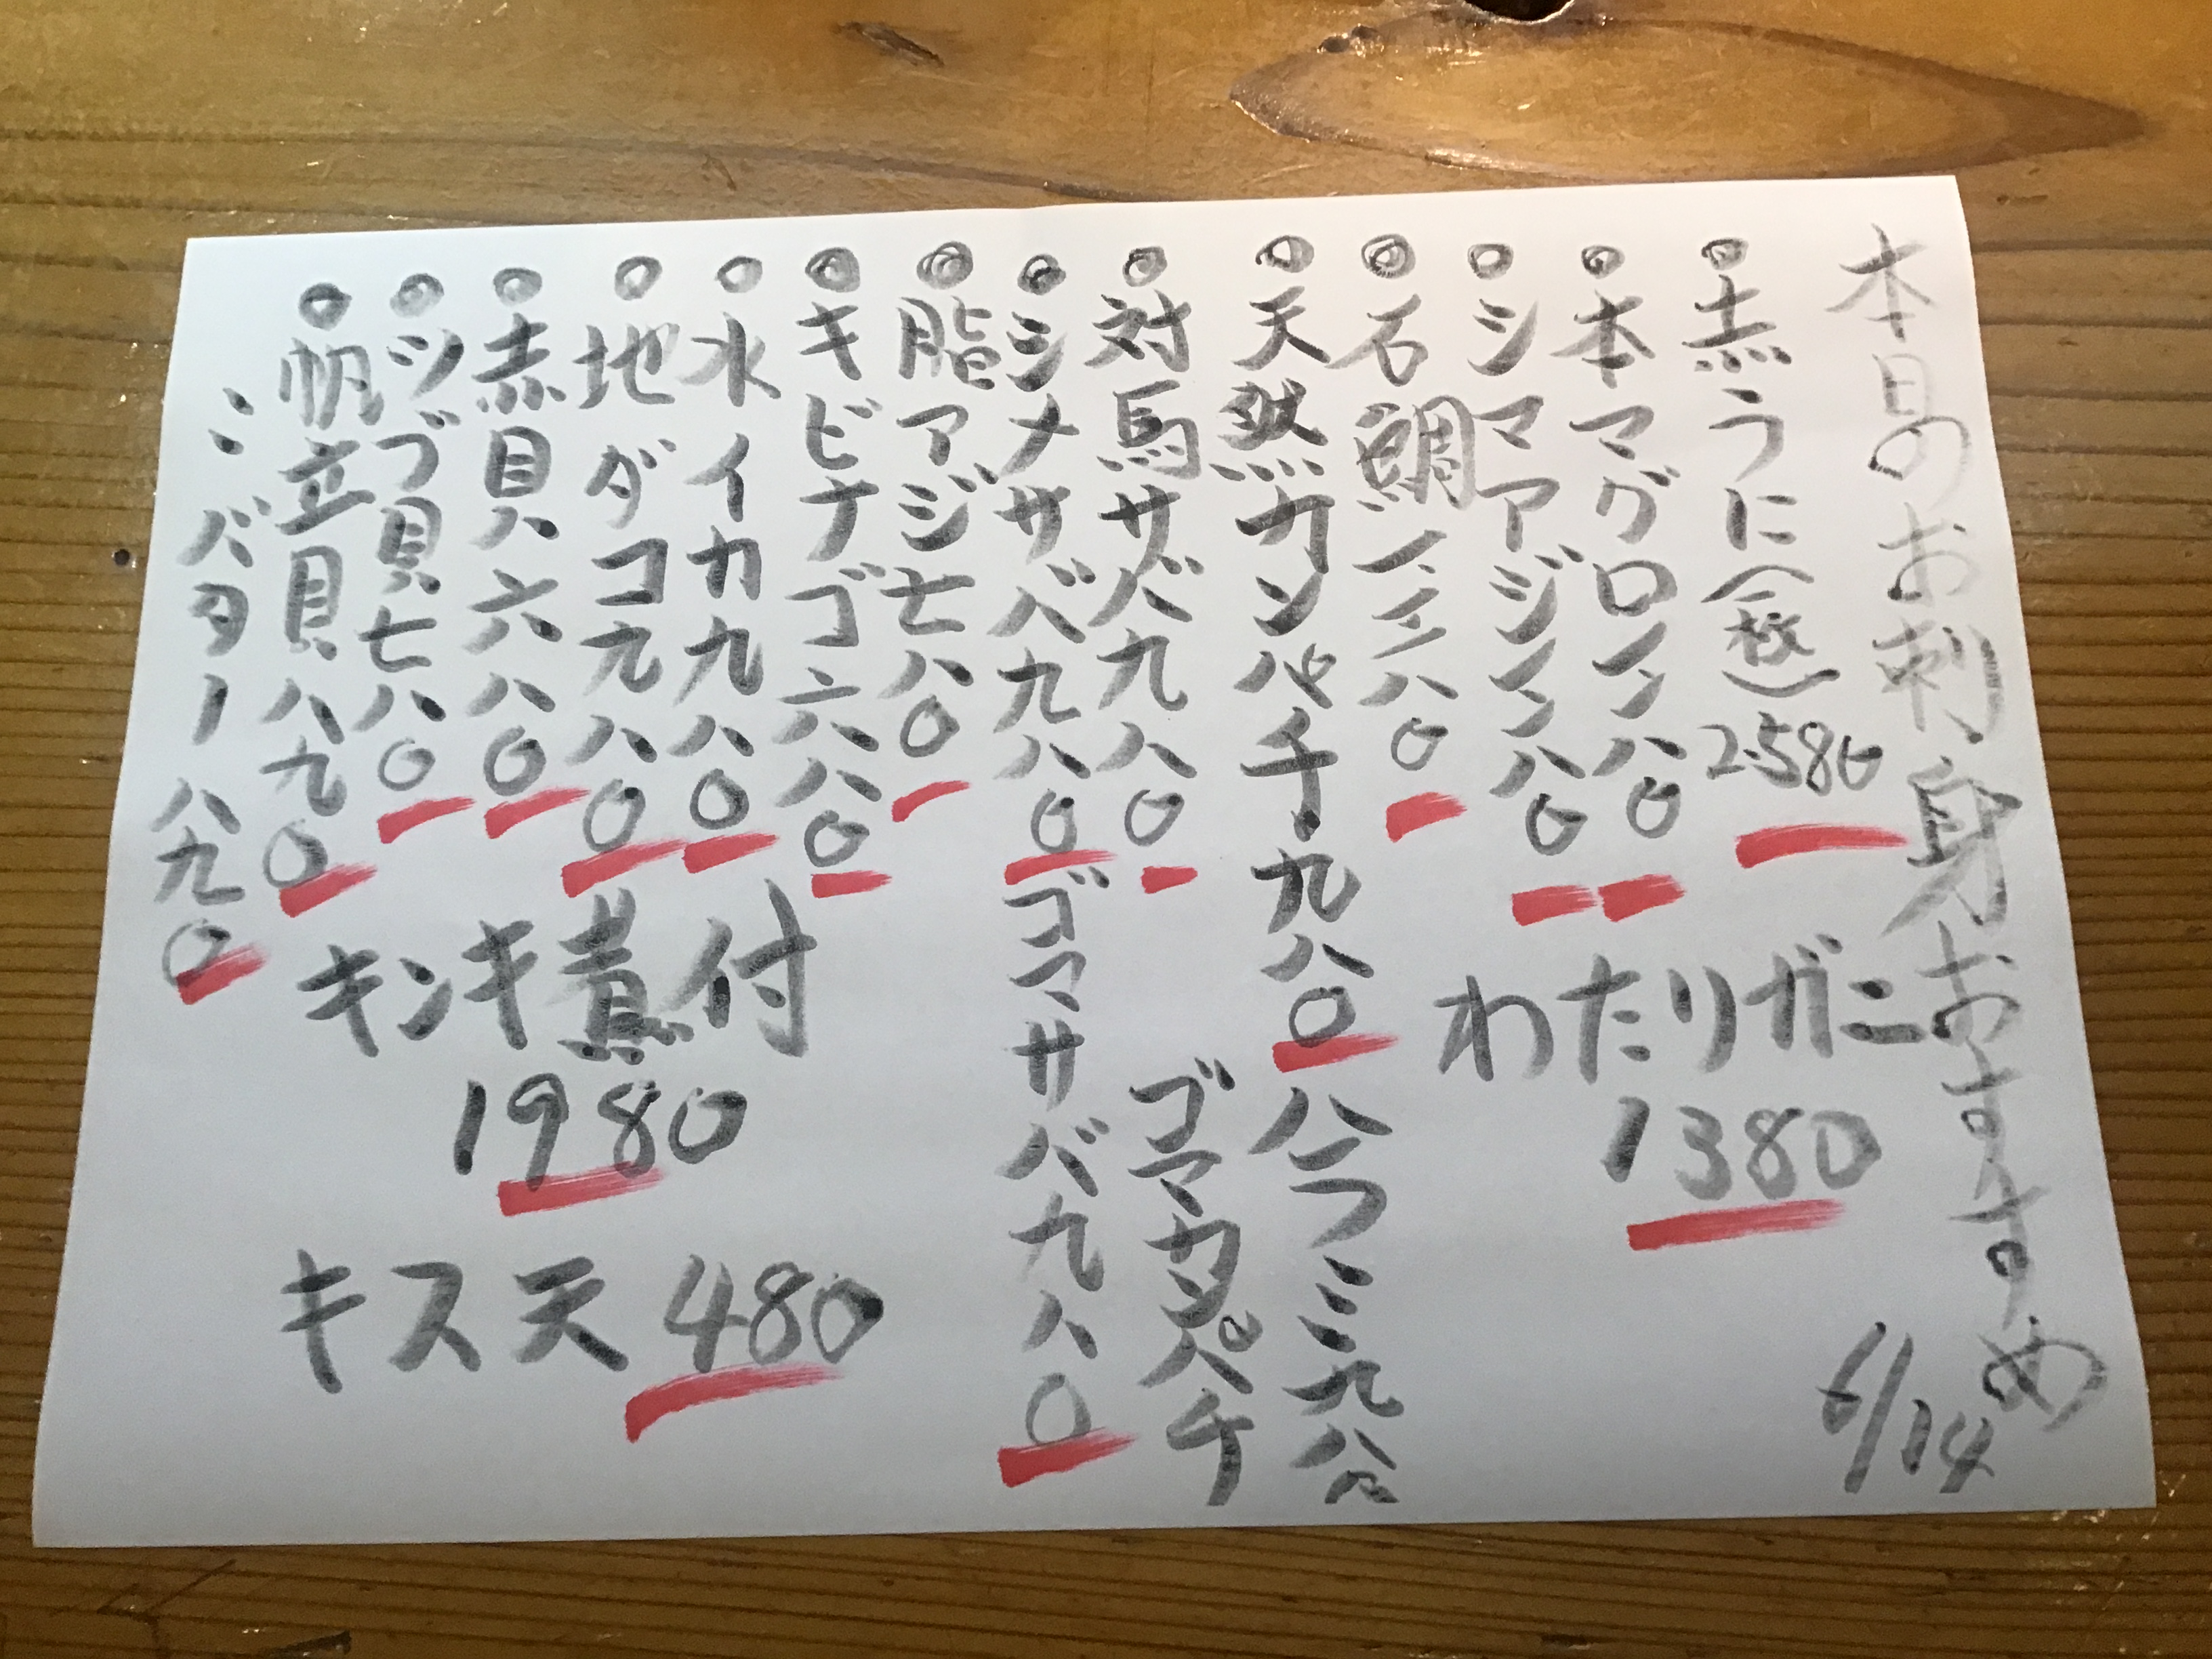 本日のお刺身おすすめ
6/14
赤うに(一枚)2580
本マグロ一二八〇
シマアジ一二八〇
わたりガニ
1380
石鯛一三八〇
天然カンパチ・九八〇
ハラミ九八〇
対馬サバ九八〇
ゴマカンパチ
シメサバ九八〇
ゴマサバ九八〇
脂アジ七八〇
キビナゴ六八〇
水イカ九八〇
地ダコ九八〇
赤貝六八〇
ツブ貝七八〇
帆立貝八九〇
〃バター八九〇
キンキ煮付
1980
キス天480